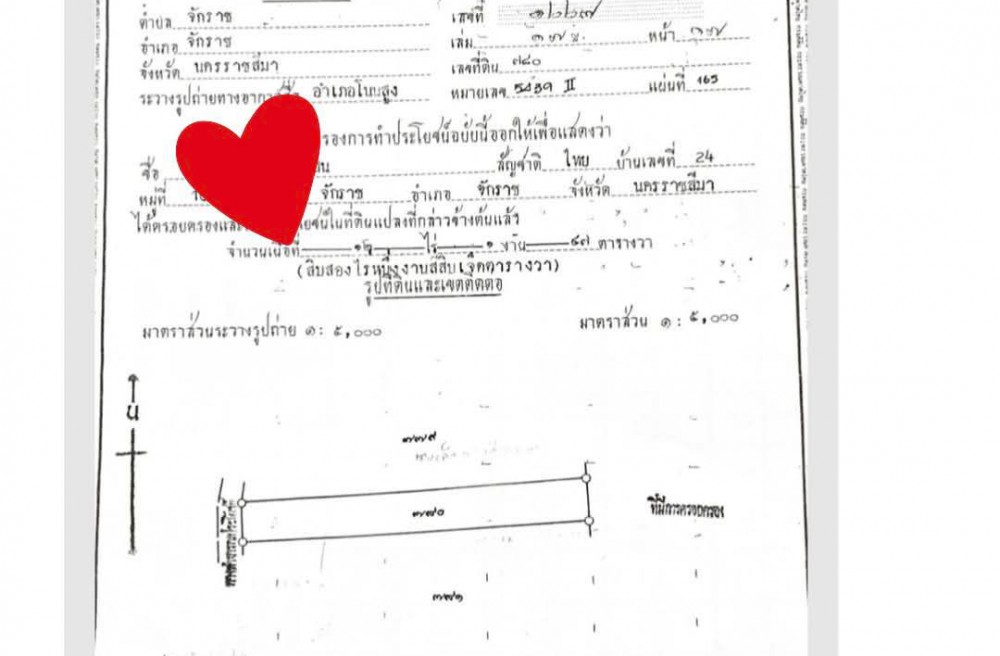 ตำบล จักราช เลขที่ ๑๒๒๗
อำเภอ จักราช เล่ม หน้า
จังหวัด นครราชสีมา เลขที่ดิน ๗๘๐
ระวางรูปถ่ายทางอากาศชื่อ อำเภอโนนสูง หมายเลข 5439 II แผ่นที่ 165
รองการทำประโยชน์ฉบับนี้ออกให้เพื่อแสดงว่า
ชื่อ สัญชาติ ไทย บ้านเลขที่ 24
หมู่ที่ จักราช อำเภอ จักราช จังหวัด นครราชสีมา
ได้ครอบครองและ โยชน์ในที่ดินแปลงที่กล่าวข้างต้นแล้ว
จำนวนเนื้อที่ ๑๒ ไร่ ๑ งาน ๔๗ ตารางวา
(สิบสองไร่หนึ่งงานสี่สิบเจ็ดตารางวา)
รูปที่ดินและเขตติดต่อ
มาตราส่วนระวางรูปถ่าย ๑: ๕,๐๐๐ มาตราส่วน ๑: ๕,๐๐๐
น
๗๗๙
๗๘๐
ที่มีการครอบครอง
๗๘๑